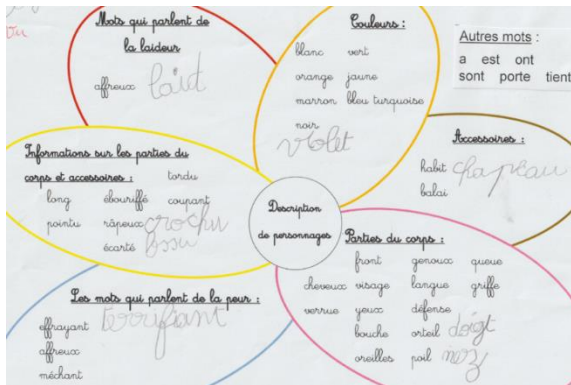 Mots qui parlent de
la laideur
affreux laid
Couleurs :
blanc vert
orange jaune
marron bleu turquoise
noir
violet
Autres mots :
a est ont
sont porte tient
Informations sur les parties du
corps et accessoires : tordu
long ébouriffé coupant
pointu râpeux crochu
écarté bossu
Accessoires :
habit chapeau
balai
Description
de personnages
Parties du corps :
front genoux queue
cheveux visage langue griffe
verrue yeux défense
bouche orteil doigt
oreilles poil nez
Les mots qui parlent de la peur :
effrayant terrifiant
affreux
méchant